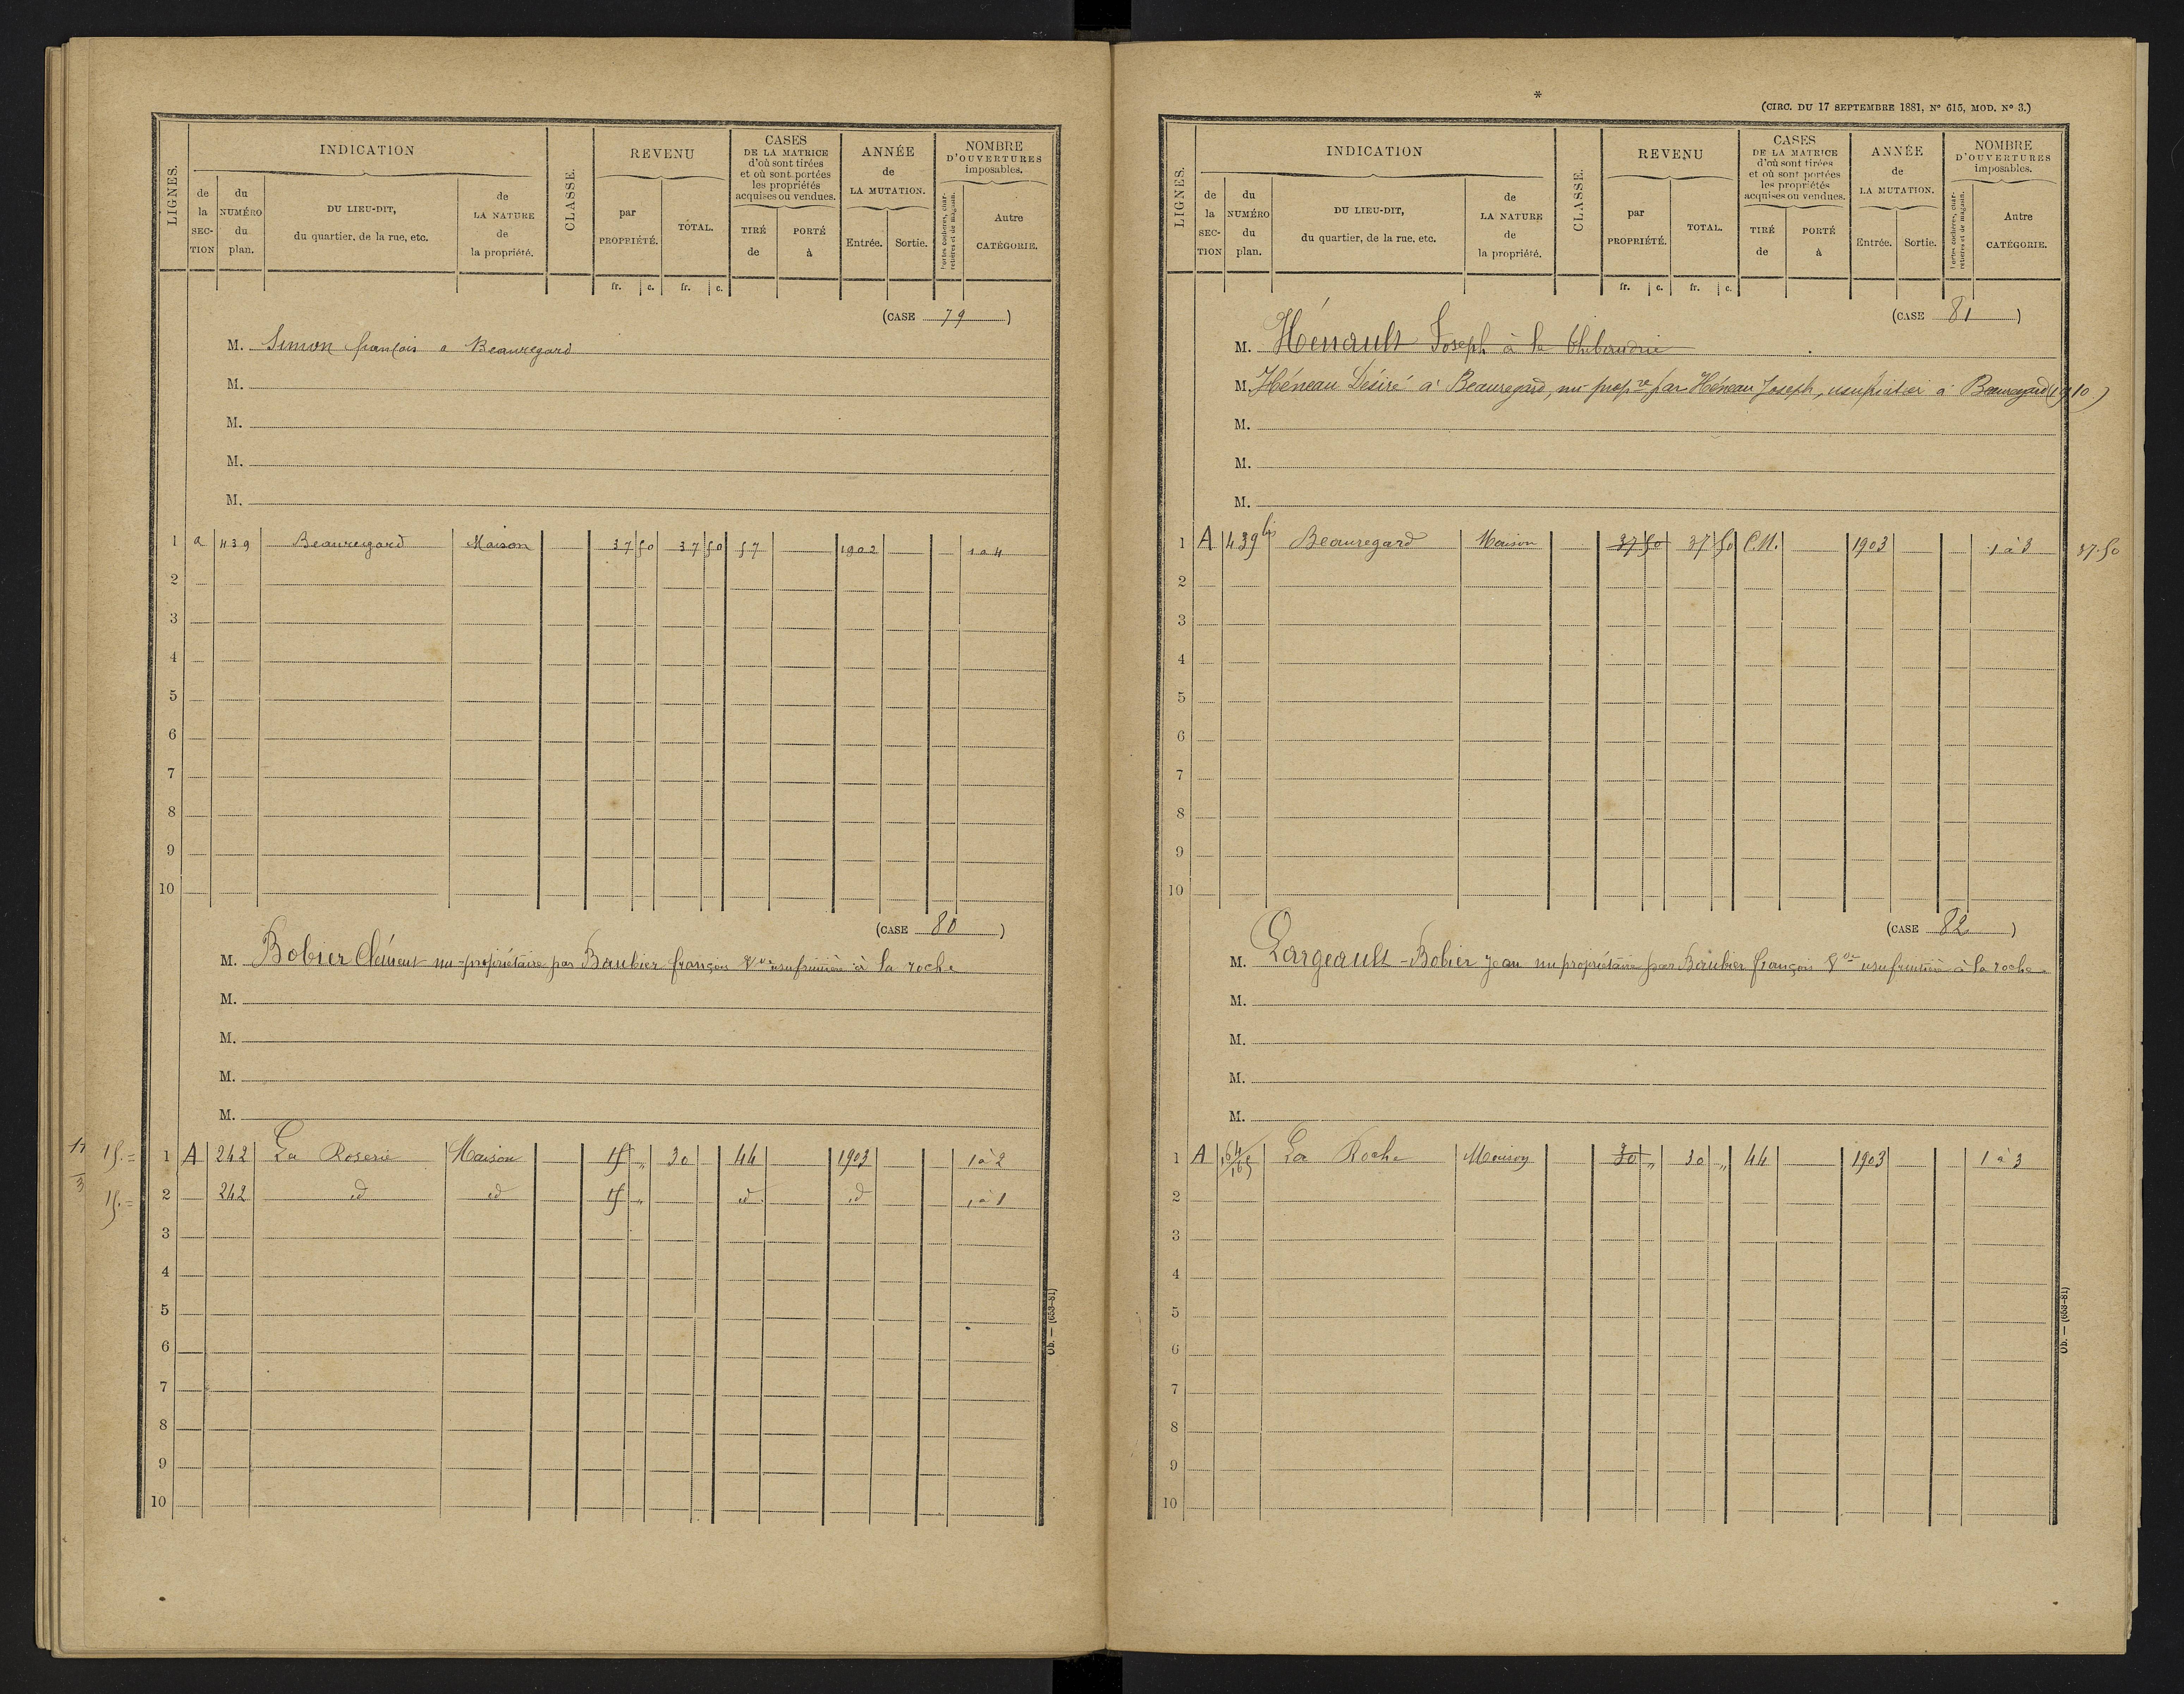 LIGNES.
INDICATION
de la SECTION
du NUMÉRO du plan.
DU LIEU-DIT, du quartier, de la rue, etc.
de LA NATURE de la propriété.
CLASSE.
REVENU
par PROPRIÉTÉ.
TOTAL.
CASES DE LA MATRICE d'où sont tirées et où sont portées les propriétés acquises ou vendues.
TIRÉ de
PORTÉ à
ANNÉE de LA MUTATION.
Entrée.
Sortie.
NOMBRE D'OUVERTURES imposables.
Portes cochères, charretières et de magasin.
Autre CATÉGORIE.
fr. c. fr. c.
(CASE 79)
M. Simon françois a Beauregard
M.
M.
M.
M.
1 a 439 Beauregard Maison 37 50 37 50 57 1902 1 a 4
2
3
4
5
6
7
8
9
10
(CASE 80)
M. Bobier Clément nu-propriétaire par Baubier françois Vve usufruitière à la roche
M.
M.
M.
M.
15.= 1 A 242 La Roserie Maison 15 " 30 44 1903 1 à 2
15.= 2 242 id id 15 " id id 1 à 1
3
4
5
6
7
8
9
10
Ob. — (653-81)
*
(CIRC. DU 17 SEPTEMBRE 1881, N° 615, MOD. N° 3.)
LIGNES.
INDICATION
de la SECTION
du NUMÉRO du plan.
DU LIEU-DIT, du quartier, de la rue, etc.
de LA NATURE de la propriété.
CLASSE.
REVENU
par PROPRIÉTÉ.
TOTAL.
CASES DE LA MATRICE d'où sont tirées et où sont portées les propriétés acquises ou vendues.
TIRÉ de
PORTÉ à
ANNÉE de LA MUTATION.
Entrée.
Sortie.
NOMBRE D'OUVERTURES imposables.
Portes cochères, charretières et de magasin.
Autre CATÉGORIE.
fr. c. fr. c.
(CASE 81)
M. Hénault Joseph à la Thibaudrie
M. Héneau Désiré à Beauregard, nu-propre par Héneau Joseph, usufruitier à Beauregard (1910)
M.
M.
M.
1 A 439 bis Beauregard Maison 37 50 37 50 C.N. 1903 1 à 3 37.50
2
3
4
5
6
7
8
9
10
(CASE 82)
M. Largeault-Bobier Jean nu propriétaire par Baubier françois Vve usufruitière à la roche
M.
M.
M.
M.
1 A 164/165 La Roche Maison 30 " 30 " 44 1903 1 à 3
2
3
4
5
6
7
8
9
10
Ob. — (653-81)